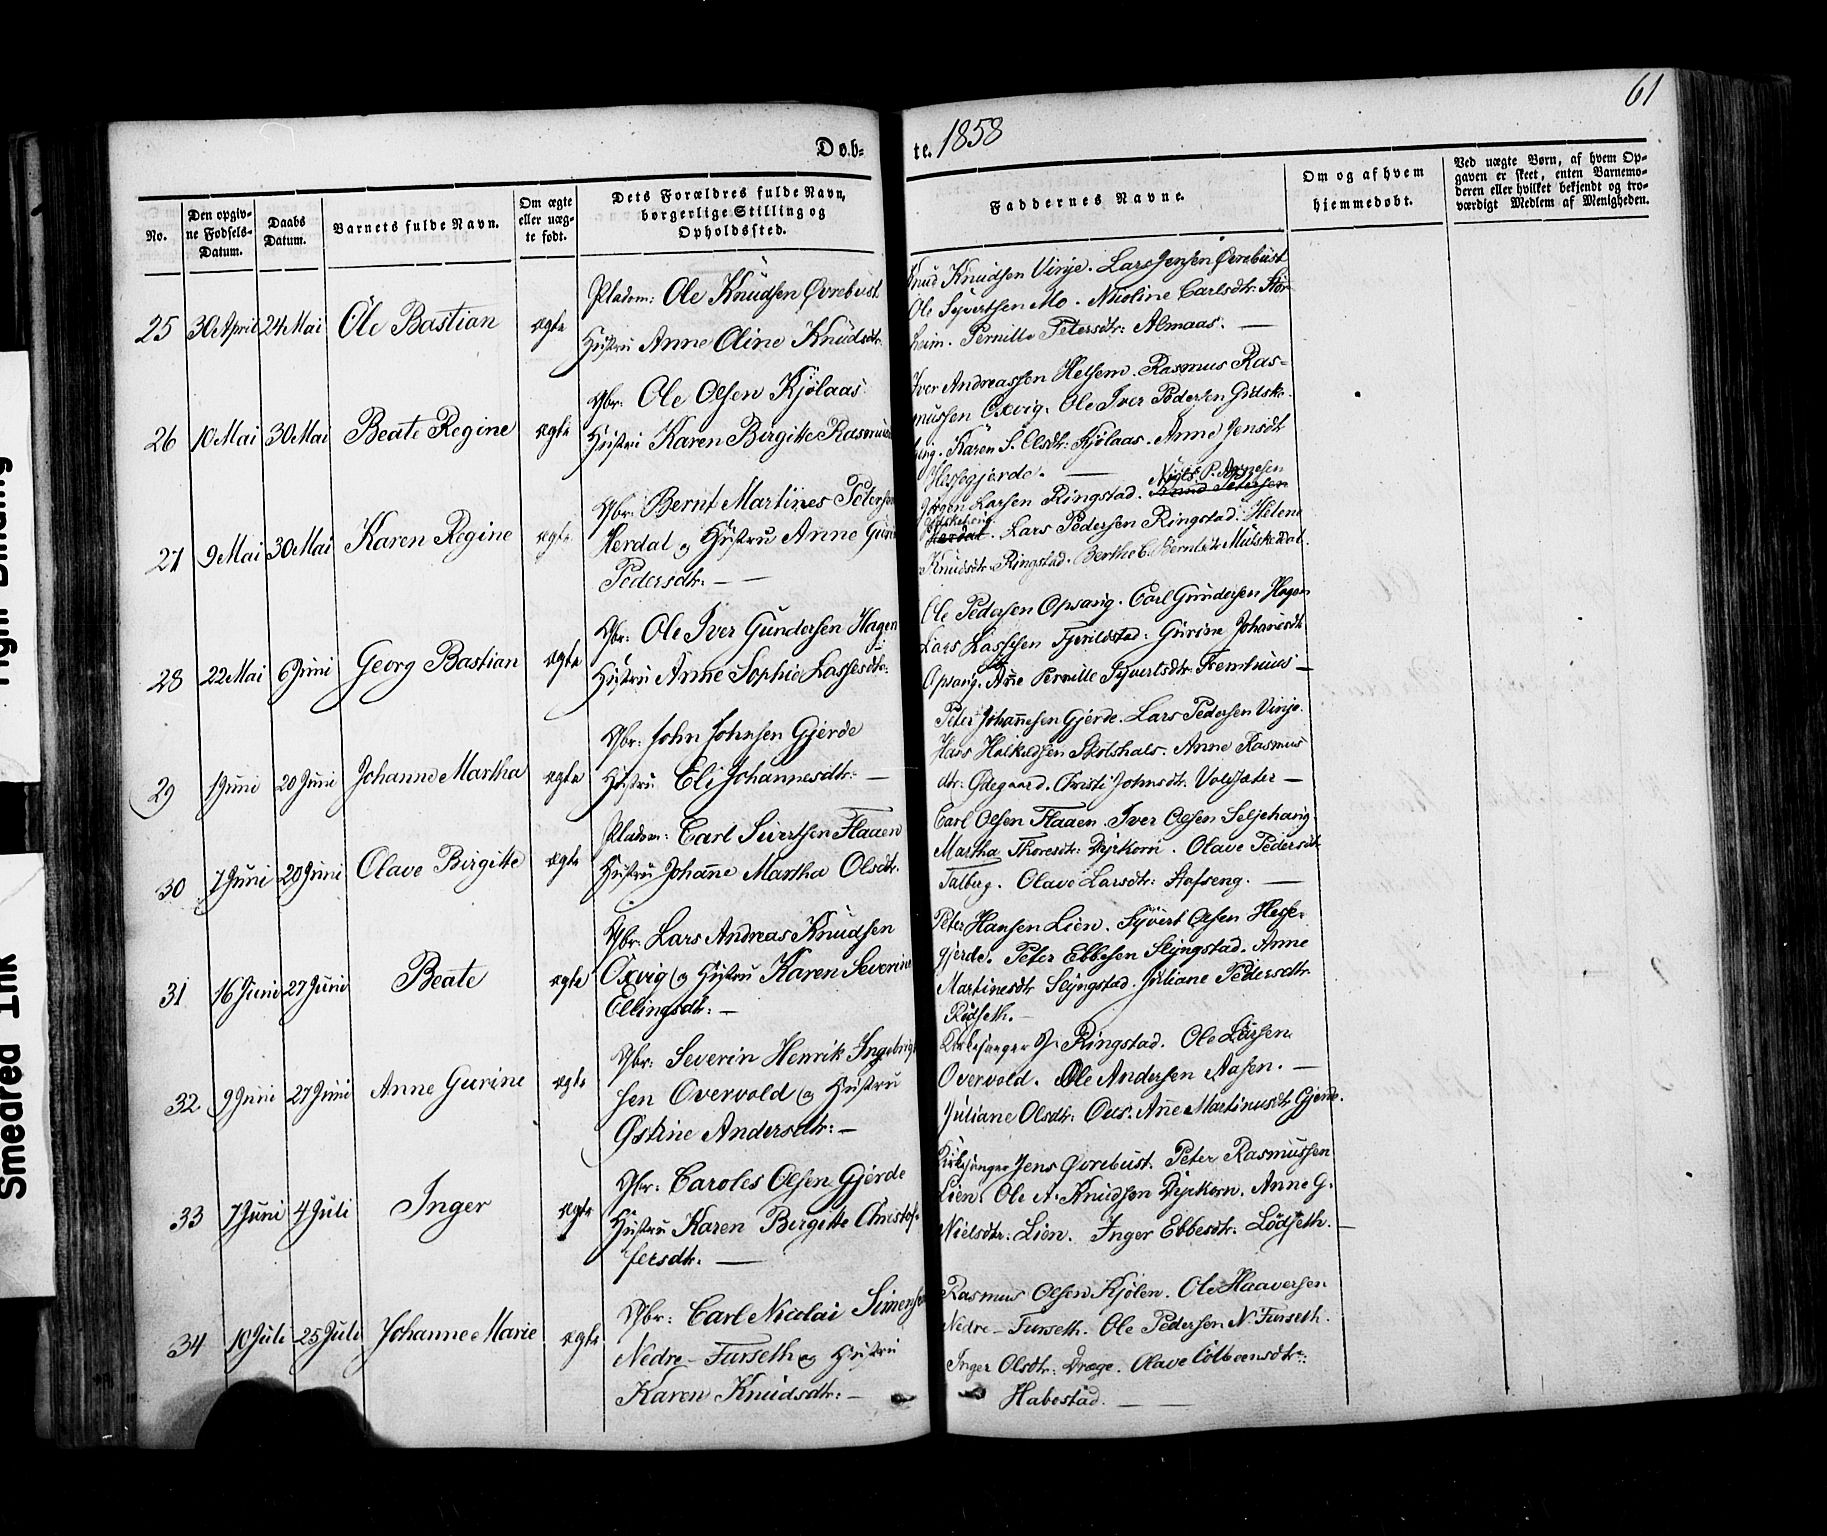 61
Døb-
te. 1858
No.
Den opgiv-
ne Fødsels-
Datum.
Daabs
Datum.
Barnets fulde Navn.
Om ægte
eller uæg-
te født.
Dets Forældres fulde Navn,
borgerlige Stilling og
Opholdssted.
Faddernes Navne.
Om og af hvem
hjemmedøbt.
Ved uægte Børn, af hvem Op-
gaven er skeet, enten Barnemo-
deren eller hvilket bekjendt og tro-
værdigt Medlem af Menigheden.
25 30 April 24 Mai Ole Bastian ægte
Pladsm: Ole Knudsen Øvrebust
Hustru Anne Oline Knudsdtr.
Knud Knudsen Vinje. Lars Jensen Øvrebust
Ole Syvertsen Mo. Nicoline Carlsdtr: Stor-
heim. Pernille Petersdtr: Almaas. —
26 10 Mai 30 Mai Beate Regine ægte
Gbr: Ole Olsen Kjølaas
Hustru Karen Birgitte Rasmus
Iver Andreassen Helsem. Rasmus Ras-
mussen Oxvig. Ole Iver Pedersen Gidske-
heng. Karen S. Olsdtr: Kjølaas. Anne Jensdtr
Hessegjerde. —
27 9 Mai 30 Mai Karen Regine ægte
Gbr: Bernt Martines Petersen
Herdal og Hustru Anne Gur
Pedersdtr: —
Jørgen Larsen Ringstad. Knud Petersen
Herdal. Lars Pedersen Ringstad. Helene
Knudsdtr. Ringstad. Berthe C. Berntsdtr Mulskedal.
28 22 Mai 6 Juni Georg Bastian ægte
Gbr: Ole Iver Gundersen Hagen
Hustru Anne Sophie Lassesdtr.
Ole Pedersen Opsang. Carl Gundersen Hagen
Lars Lassesen Fjerildstad: Gurine Johansdtr
Opsang. Anne Pernille Syvertsdtr: Fremhuus —
29 1 Juni 20 Juni Johanne Martha ægte
Gbr: John Johnsen Gjerde
Hustru Eli Johannesdtr: —
Peter Johannesen Gjerde. Lars Pedersen Vinje.
Hans Halkildsen Skotshals. Anne Rasmus
dtr: Ødegaard. Christi Johnsdtr. Volsæter —
30 7 Juni 20 Juni Olave Birgitte ægte
Pladsm: Carl Sivertsen Flaaen
Hustru Johanne Martha Olsdtr.
Carl Olsen Flaaen. Iver Olsen Seljehaug.
Martha Thoresdtr: Dyrkorn. Olave Pedersdtr
Talberg. Olave Larsdtr: Stafseng. —
31 16 Juni 27 Juni Beate ægte
Gbr: Lars Andreas Knudsen
Oxvig og Hustru Karen Severine
Ellingsdtr: —
Peter Hansen Lien. Syvert Olsen Hege-
gjerde. Peter Ebbesen Slyngstad. Anne
Martinesdtr Slyngstad. Juliane Pedersdtr
Rødseth. —
32 9 Juni 27 Juni Anne Gurine ægte
Gbr: Severin Henrik Ingebrigt
sen Overvold og Hustru
Østine Andersdtr: —
Kirkesanger J. Ringstad. Ole Larsen
Overvold. Ole Andersen Aasen. —
Juliane Olsdtr: Ous. Anne Martinusdtr Gjerde.
33 7 Juni 4 Juli Inger ægte
Gbr: Caroles Olsen Gjerde
Hustru Karen Birgitte Christof-
fersdtr. —
Kirkesanger Jens Øvrebust. Peter Rasmussen
Lien. Ole A. Knudsen Dyrkorn. Anne G.
Nielsdtr: Lien. Inger Ebbesdtr: Lødseth. —
34 10 Juli 25 Juli Johanne Marie ægte
Gbr: Carl Nicolai Simensen
Nedre-Furseth og Hustru
Karen Knudsdtr: —
Rasmus Olsen Kjølen. Ole Haaversen
Nedre-Furseth. Ole Pedersen N. Furseth.
Inger Olsdtr: Drage. Olave Colbeensdtr:
Habostad. —
Tight Binding
Smeared Ink